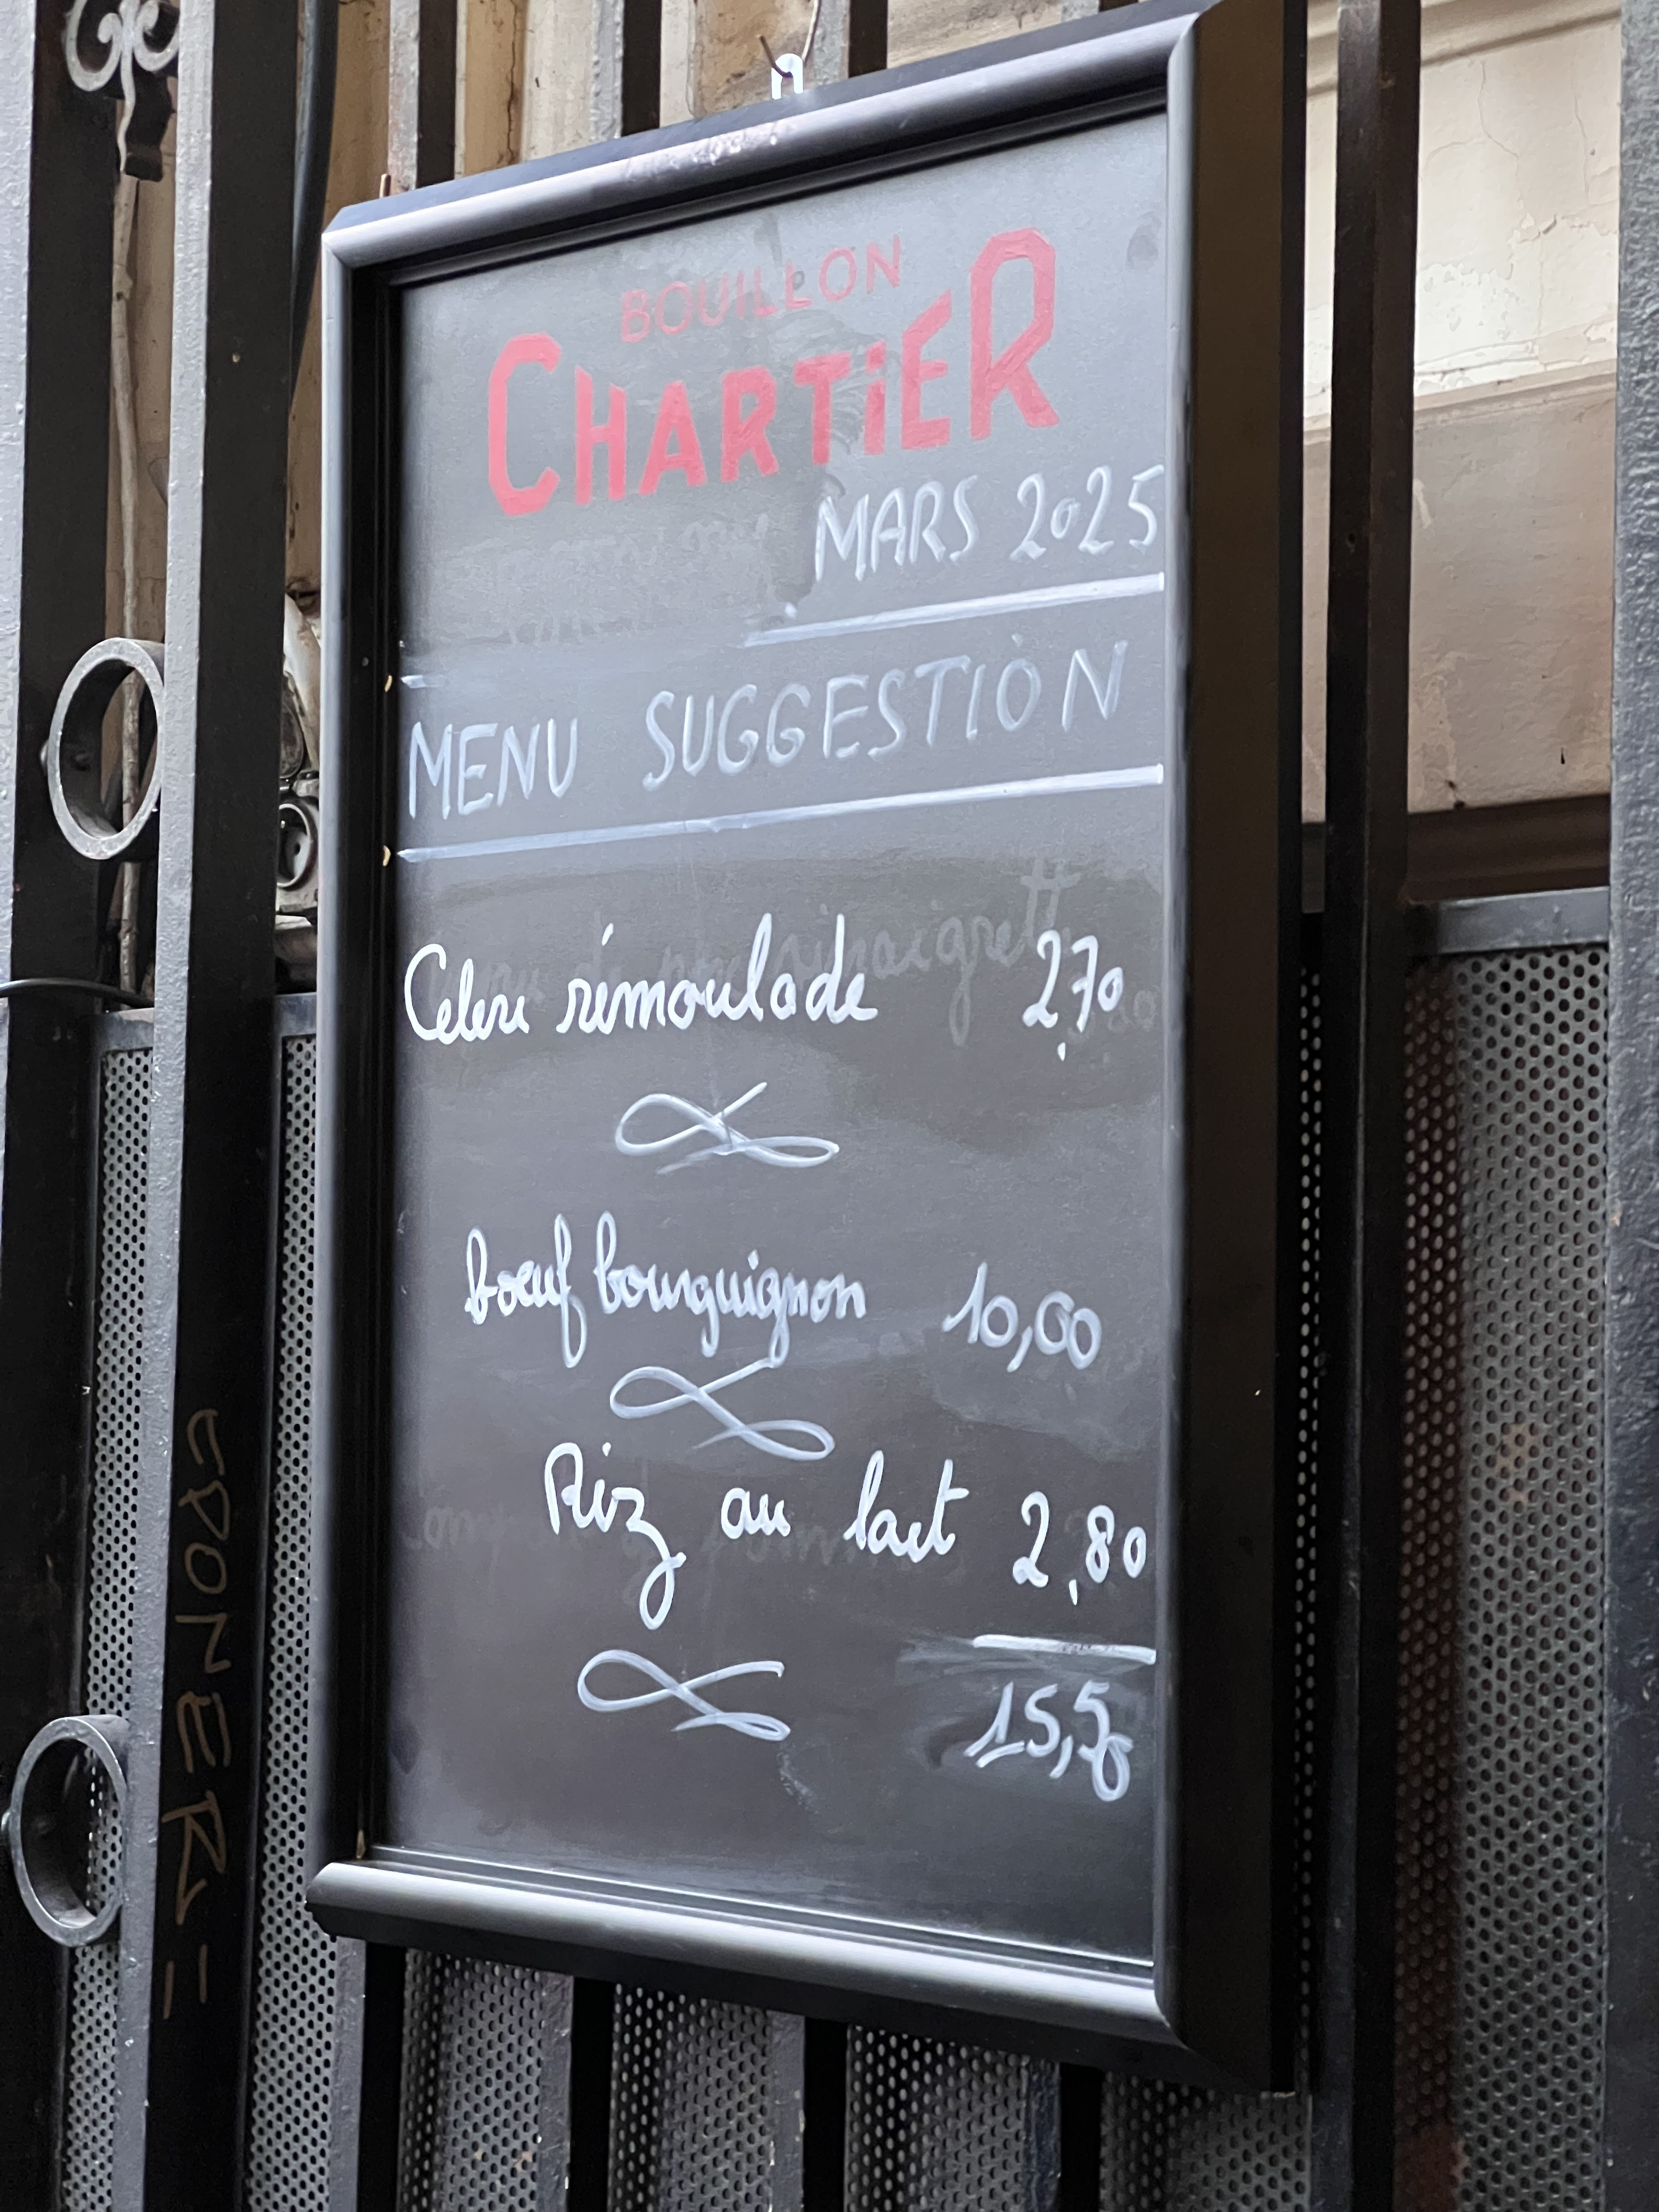 BOUILLON
CHARTiER
MARS 2025
MENU SUGGESTION
Celeri rémoulade 2,70
boeuf bourguignon 10,00
Riz au lait 2,80
15,50